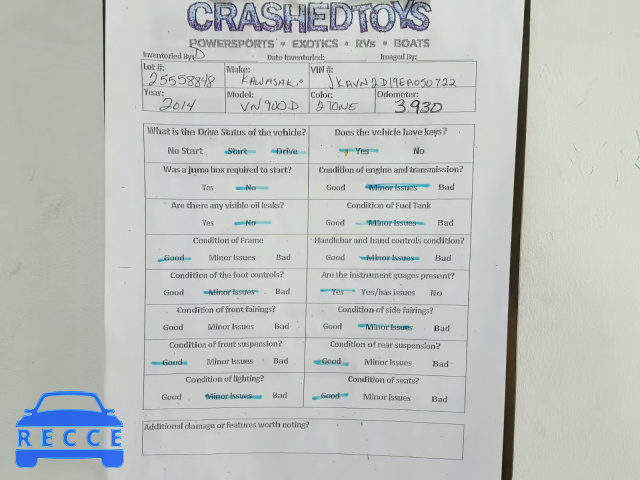 CRASHEDTOYS
POWERSPORTS • EXOTICS • RVs • BOATS
Inventoried By: D Date Inventoried: Imaged By:
Lot #: Make: VIN #:
25558848 KAWASAKI JKAVN2D19EA050722
Year: Model: Color: Odometer:
2014 VN900D 2 TONE 3,930
What is the Drive Status of the vehicle? Does the vehicle have keys?
No Start Start Drive Yes No
Was a jump box required to start? Condition of engine and transmission?
Yes No Good Minor Issues Bad
Are there any visible oil leaks? Condition of Fuel Tank
Yes No Good Minor Issues Bad
Condition of Frame Handlebar and hand controls condition?
Good Minor Issues Bad Good Minor Issues Bad
Condition of the foot controls? Are the instrument guages present?
Good Minor Issues Bad Yes Yes/has issues No
Condition of front fairings? Condition of side fairings?
Good Minor Issues Bad Good Minor Issues Bad
Condition of front suspension? Condition of rear suspension?
Good Minor Issues Bad Good Minor Issues Bad
Condition of lighting? Condition of seats?
Good Minor Issues Bad Good Minor Issues Bad
Additional damage or features worth noting?
RECCE